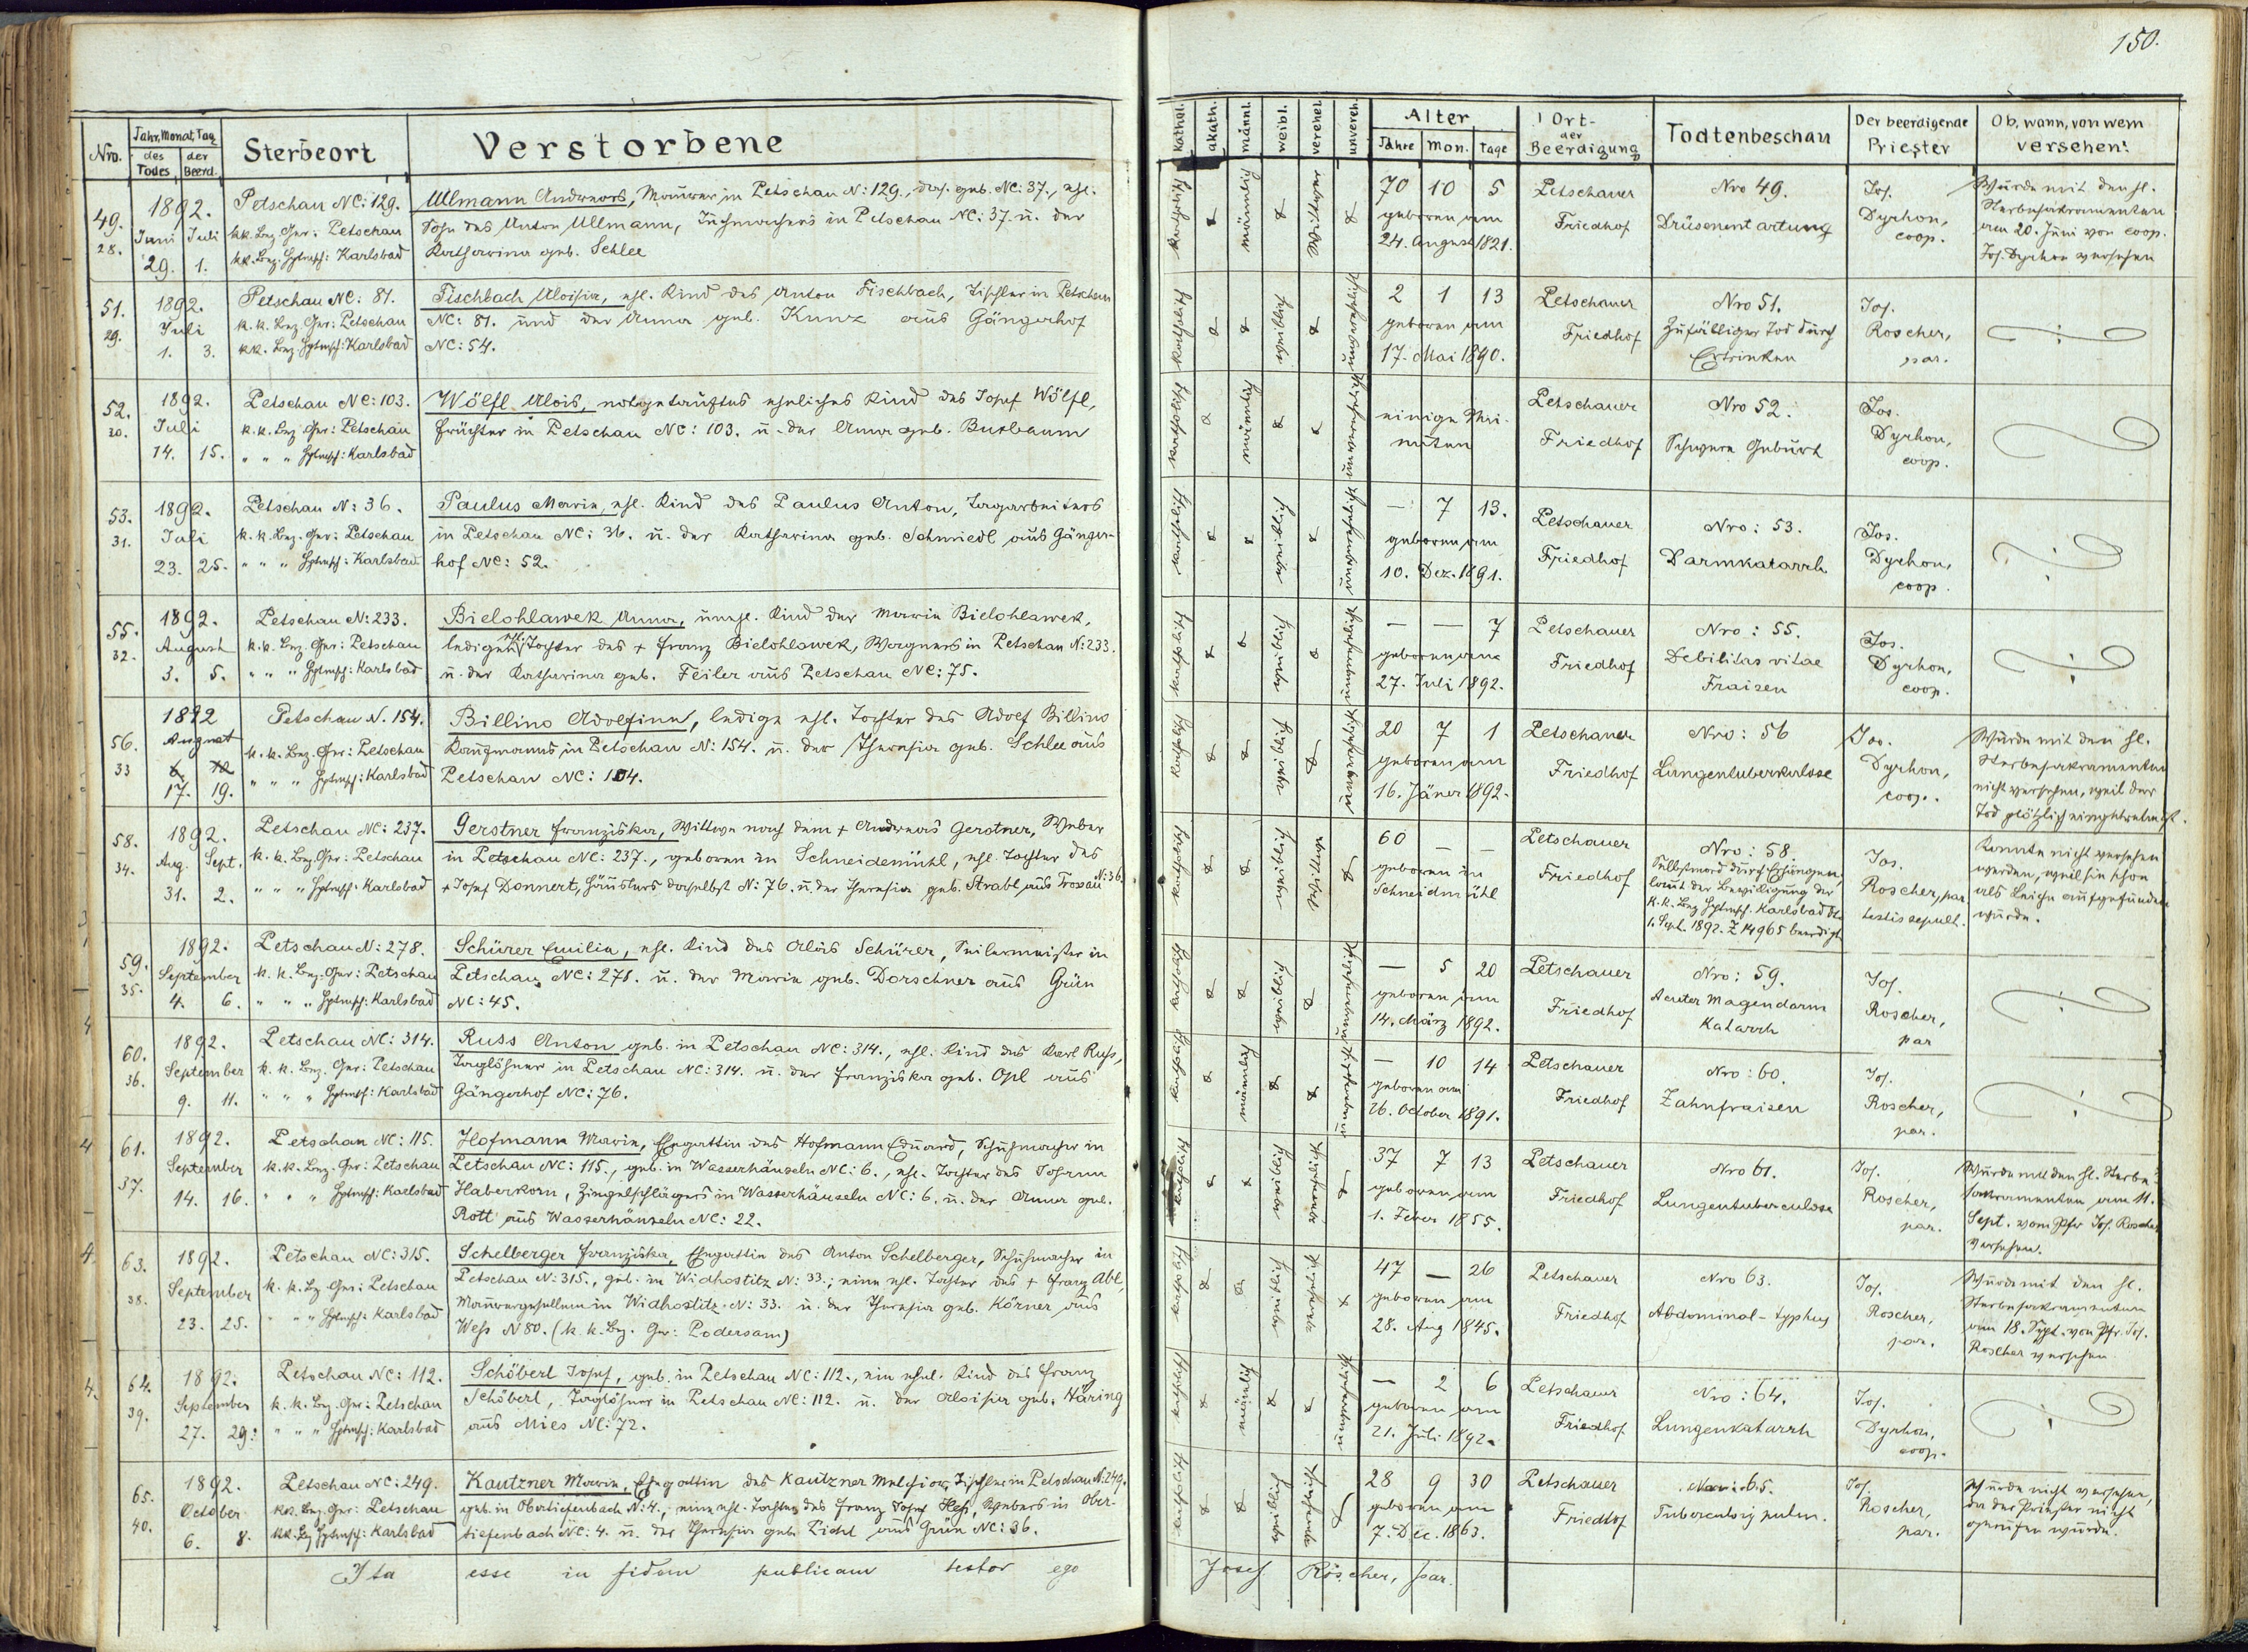 150.
Nro. Jahr, Monat, Tag Sterbeort Verstorbene
des Todes der Beerd.
kathol. akath. männl. weibl. verehel. unvereh. Alter Ort der Beerdigung Todtenbeschau Der beerdigende Priester Ob, wann, von wem versehen?
Jahre Mon. Tage
49. 28. 1892. Juni 29. Juli 1.
Petschau NC: 129.
kk. Bez. Ger: Petschau
kk. Bez. Hptmsch: Karlsbad
Ullmann Andreas, Maurer in Petschau N: 129., das. geb. NC: 37., ehl.
Sohn des Anton Ullmann, Tuchmachers in Petschau NC: 37 u. der
Katharina geb. Schlee
katholisch männlich Witwer
70 10 5
geboren am
24. August 1821.
Petschauer
Friedhof
Nro 49.
Drüsenentartung
Jos.
Dyrhon,
coop.
Wurde mit den hl.
Sterbesakramenten
am 20. Juni von coop.
Jos. Dyrhon versehen
51. 29. 1892. Juli 1. 3.
Petschau NC: 81.
k. k. Bez. Ger: Petschau
kk. Bez. Hptmsch: Karlsbad
Fischbach Aloisia, ehl. Kind des Anton Fischbach, Tischler in Petschau
NC: 81. und der Anna geb. Kunz aus Gängerhof
NC: 54.
katholisch weiblich unverehelicht
2 1 13
geboren am
17. Mai 1890.
Petschauer
Friedhof
Nro 51.
Zufälliger Tod durch
Ertrinken
Jos.
Roscher,
par.
52. 30. 1892. Juli 14. 15.
Petschau NC: 103.
k. k. Bez. Ger: Petschau
" " " Hptmsch: Karlsbad
Wölfl Alois, notgetauftes eheliches Kind des Josef Wölfl,
in Petschau NC: 103. u. der Anna geb. Buxbaum
katholisch männlich unverehelicht
einige Mi-
nuten
Petschauer
Friedhof
Nro 52.
Schwere Geburt
Jos.
Dyrhon,
coop.
53. 31. 1892. Juli 23. 25.
Petschau N: 36.
k. k. Bez. Ger: Petschau
" " " Hptmsch: Karlsbad
Paulus Marie, ehl. Kind des Paulus Anton, Tagarbeiters
in Petschau NC: 36. u. der Katharina geb. Schmiedl aus Gänger-
hof NC: 52.
katholisch weiblich unverehelicht
— 7 13.
geboren am
10. Dez. 1891.
Petschauer
Friedhof
Nro: 53.
Darmkatarrh
Jos.
Dyrhon,
coop.
55. 32. 1892. August 3. 5.
Petschau N: 233.
k. k. Bez. Ger: Petschau
" " " Hptmsch: Karlsbad
Bielohlawek Anna, unehl. Kind der Marie Bielohlawek,
ledigen ehl. Tochter des + Franz Bielohlawek, Wagners in Petschau N: 233.
u. der Katharina geb. Feiler aus Petschau NC: 75.
katholisch weiblich unverehelicht
— — 7
geboren am
27. Juli 1892.
Petschauer
Friedhof
Nro: 55.
Debilitas vitae
Fraisen
Jos.
Dyrhon,
coop.
56. 33 1892 August 17. 19.
Petschau N. 154.
k. k. Bez. Ger: Petschau
" " " Hptmsch: Karlsbad
Billino Adolfine, ledige ehl. Tochter des Adolf Billino
Kaufmanns in Petschau N: 154. u. der Theresia geb. Schlee aus
Petschau NC: 104.
katholisch weiblich unverehelicht
20 7 1
geboren am
16. Jäner 1892.
Petschauer
Friedhof
Nro: 56
Lungentuberkulose
Jos.
Dyrhon,
coop.
Wurde mit den hl.
Sterbesakramenten
nicht versehen, weil der
Tod plötzlich eingetreten ist.
58. 34. 1892. Aug. 31. Sept. 2.
Petschau NC: 237.
k. k. Bez. Ger: Petschau
" " " Hptmsch: Karlsbad
Gerstner Franziska, Wittwe nach dem + Andreas Gerstner, Weber
in Petschau NC: 237., geboren in Schneidemühl, ehl. Tochter des
+ Josef Donnert, Häuslers daselbst N: 76. u. der Theresia geb. Strabl aus Troxau N: 36.
katholisch weiblich Wittwe
60 — —
geboren in
Schneidmühl
Petschauer
Friedhof
Nro: 58.
Selbstmord durch Erhängen,
laut der Bewilligung der
k. k. Bez. Hptmsch. Karlsbad dto
1. Sept. 1892. Z 14965 beerdigt
Jos.
Roscher, par.
testis sepult.
Konnte nicht versehen
werden, weil sie schon
als Leiche aufgefunden
wurde.
59. 35. 1892. September 4. 6.
Petschau N: 278.
k. k. Bez. Ger: Petschau
" " " Hptmsch: Karlsbad
Schürer Emilie, ehl. Kind des Alois Schürer, Seilermeister in
Petschau NC: 278. u. der Marie geb. Dorschner aus Grün
NC: 45.
katholisch weiblich unverehelicht
— 5 20
geboren am
14. März 1892.
Petschauer
Friedhof
Nro: 59.
Acuter Magendarm
Katarrh
Jos.
Roscher,
par
60. 36. 1892. September 9. 11.
Petschau NC: 314.
k. k. Bez. Ger: Petschau
" " " Hptmsch: Karlsbad
Russ Anton geb. in Petschau NC: 314., ehl. Kind des Karl Russ,
Taglöhner in Petschau NC: 314. u. der Franziska geb. Opl aus
Gängerhof NC: 76.
katholisch männlich unverehelicht
— 10 14
geboren am
26. October 1891.
Petschauer
Friedhof
Nro: 60.
Zahnfraisen
Jos.
Roscher,
par.
61. 37. 1892. September 14. 16.
Petschau NC: 115.
k. k. Bez. Ger: Petschau
" " " Hptmsch: Karlsbad
Hofmann Marie, Ehegattin des Hofmann Eduard, Schuhmacher in
Petschau NC: 115., geb. in Wasserhäuseln NC: 6., ehl. Tochter des Johann
Haberkorn, Zingelschlägers in Wasserhäuseln NC: 6. u. der Anna geb.
Rott aus Wasserhäuseln NC: 22.
katholisch weiblich verehelicht
37 7 13
geboren am
1. Feber 1855.
Petschauer
Friedhof
Nro 61.
Lungentuberculose
Jos.
Roscher,
par.
Wurde mit den hl. Sterbe-
sakramenten am 11.
Sept. vom Pfr Jos. Roscher
versehen.
63. 38. 1892. September 23. 25.
Petschau NC: 315.
k. k. Bez. Ger: Petschau
" " " Hptmsch: Karlsbad
Schelberger Franziska, Ehegattin des Anton Schelberger, Schuhmacher in
Petschau N: 315., geb. in Widhostitz N: 33.; eine ehl. Tochter des + Franz Abl,
Maurergesellen in Widhostitz N: 33. u. der Theresia geb. Körner aus
Wess N 80. (k. k. Bez. Ger: Podersam)
katholisch weiblich verehelicht
47 — 26
geboren am
28. Aug 1845.
Petschauer
Friedhof
Nro 63.
Abdominal-typhus
Jos.
Roscher,
par.
Wurde mit den hl.
Sterbesakramenten
am 18. Sept. von Pfr. Jos.
Roscher versehen
64. 39. 1892. September 27. 29.
Petschau NC: 112.
k. k. Bez. Ger: Petschau
" " " Hptmsch: Karlsbad
Schöberl Josef, geb. in Petschau NC: 112., ein ehel. Kind des Franz
Schöberl, Taglöhner in Petschau NC: 112. u. der Aloisia geb. Häring
aus Mies NC: 72.
katholisch männlich unverehelicht
— 2 6
geboren am
21. Juli 1892.
Petschauer
Friedhof
Nro: 64.
Lungenkatarrh
Jos.
Dyrhon,
coop.
65. 40. 1892. October 6. 8.
Petschau NC: 249.
kk. Bez. Ger: Petschau
kk. Bez Hptmsch: Karlsbad
Kautzner Marie, Ehegattin des Kautzner Melchior, Tischler in Petschau N: 249.
geb. in Obertiefenbach N: 4., eine ehl. Tochter des Franz Josef Hess, Webers in Ober-
tiefenbach NC: 4. u. der Theresia geb. Pichl aus Grün NC: 36.
katholisch weiblich verehelicht
28 9 30
geboren am
7. Dec. 1863.
Petschauer
Friedhof
Nro: 65.
Tuberculosis pulm.
Jos.
Roscher,
par.
Wurde nicht versehen,
da der Priester nicht
gerufen wurde.
Ita esse in fidem publicam testor ego Josef Roscher, par.